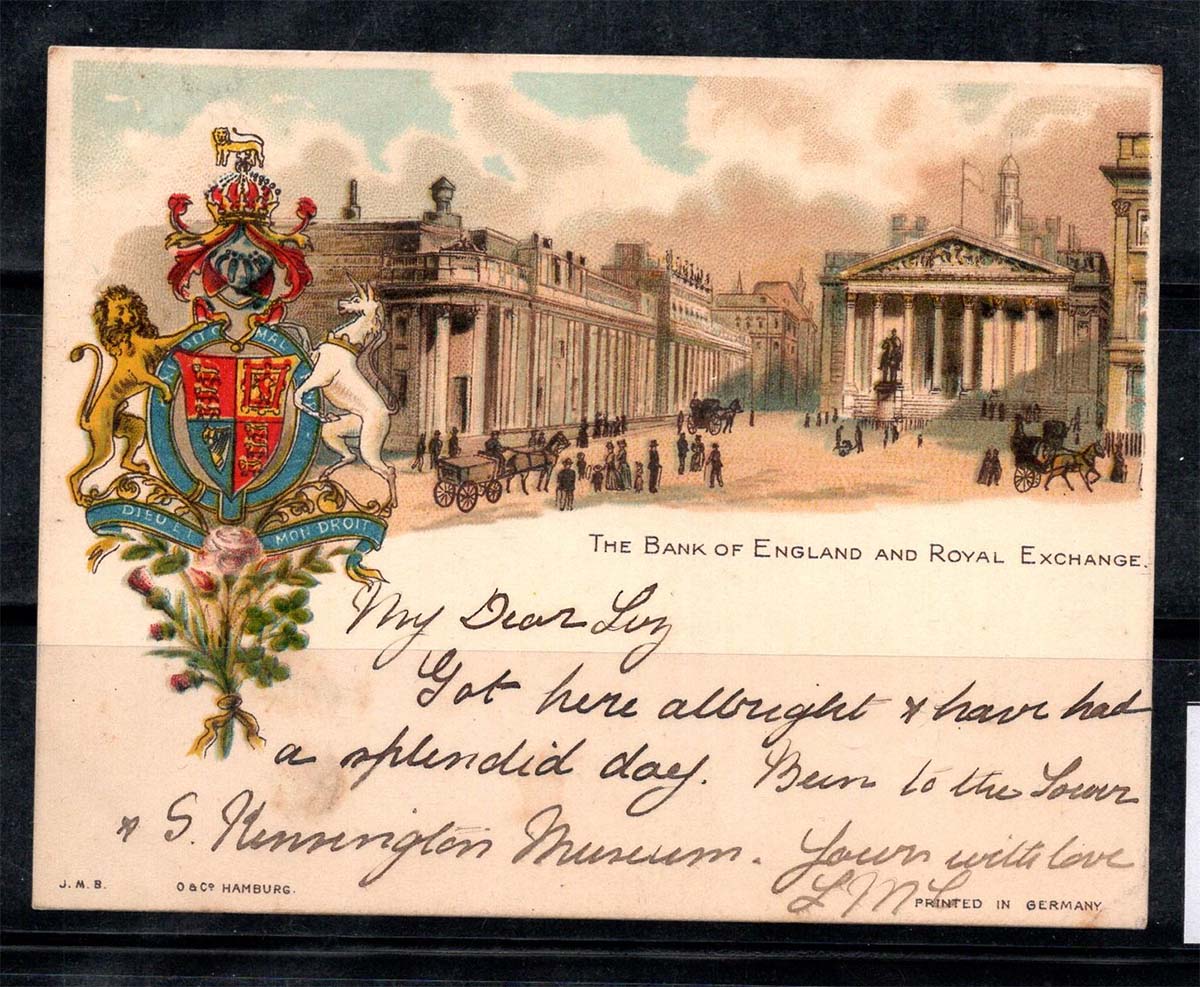 MAL
DIEU ET MON DROIT
THE BANK OF ENGLAND AND ROYAL EXCHANGE.
My Dear
Got here allright & have had
a splendid day. Been to the Tower
& S. Kensington Museum. Yours with love
J. M. B. O & Co HAMBURG. PRINTED IN GERMANY